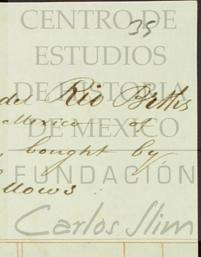 CENTRO DE
35
ESTUDIOS
DE HISTORIA
del Rio Br
Mexico of
DE MEXICO
bought by
FUNDACIÓN
Carlos Slim